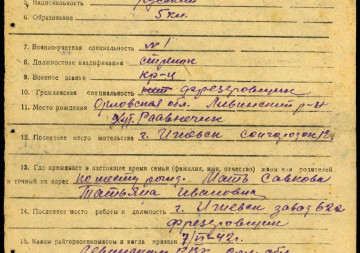 5 Национальность русский
6 Образование 5 кл.
7. Военно-учетная специальность №1
8. Должностная квалификация стрелок
9 Военное звание кр-ц
10. Гражданская специальность фрезеровщик
11 Место рождения Орловская обл. Ливенский р-н
12. Последнее место жительства г. Ижевск Соцгородок
13. Где проживает в настоящее время семья (фамилия, имя, отчество) жены или родителей
и точный их адрес по месту рожд. Мать Савкова
Татьяна Ивановна
14. Последнее место работы и должность г. Ижевск завод 622
фрезеровщик
15. Каким райгорвоенкоматом и когда призван 42 г.
РВК обл.